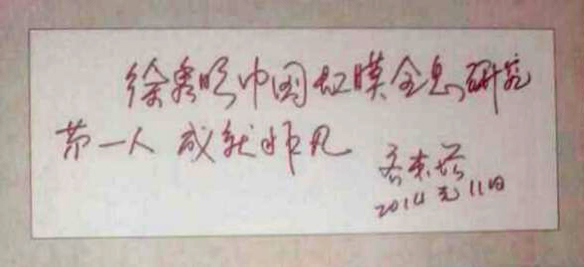 徐秀明中国虹膜全息研究
第一人 成就非凡
2014 元 11日